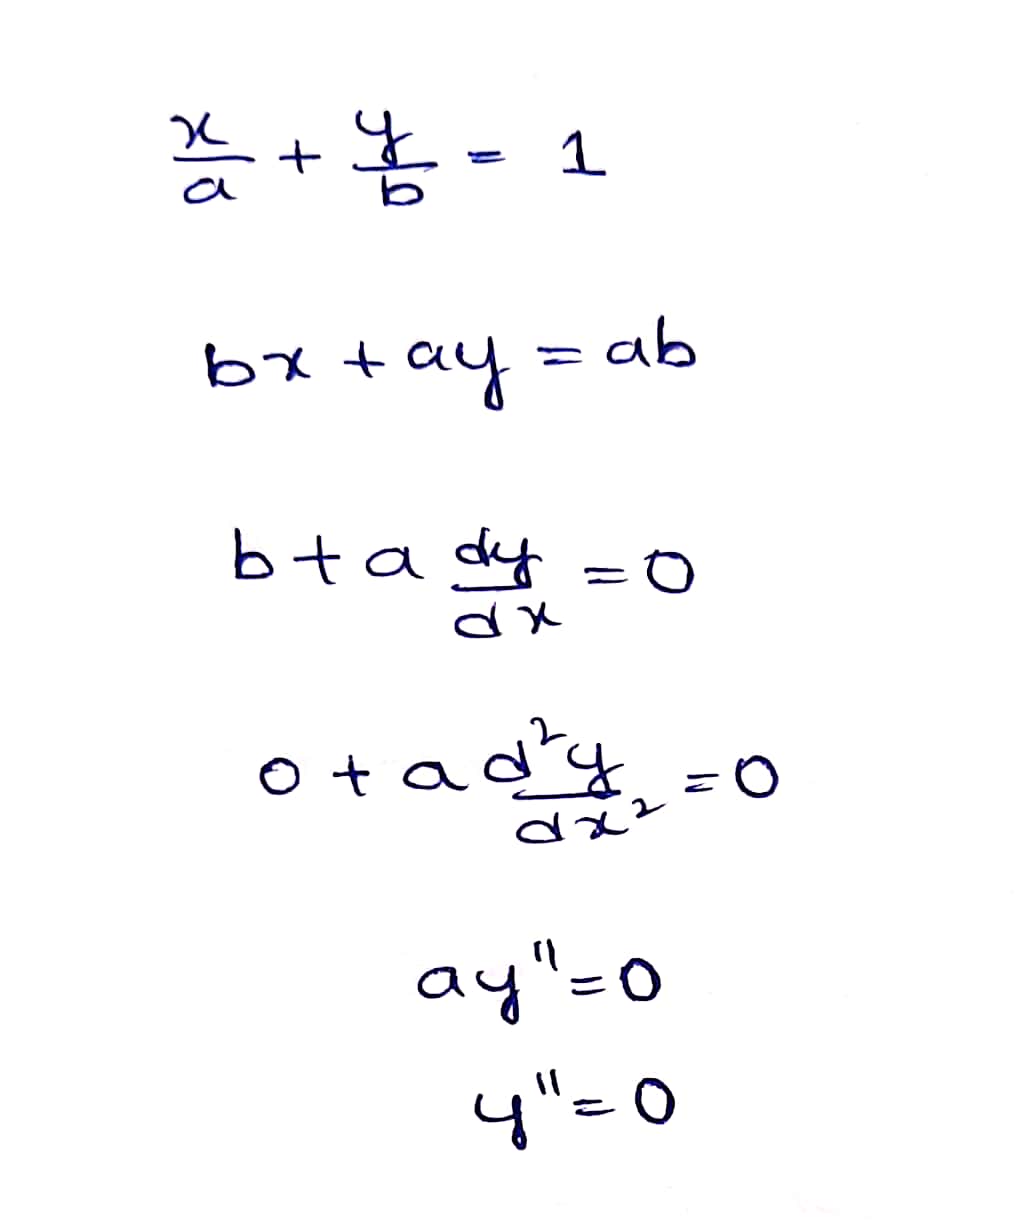 x/a + y/b = 1
bx + ay = ab
b + a dy/dx = 0
0 + a d²y/dx² = 0
ay" = 0
y" = 0